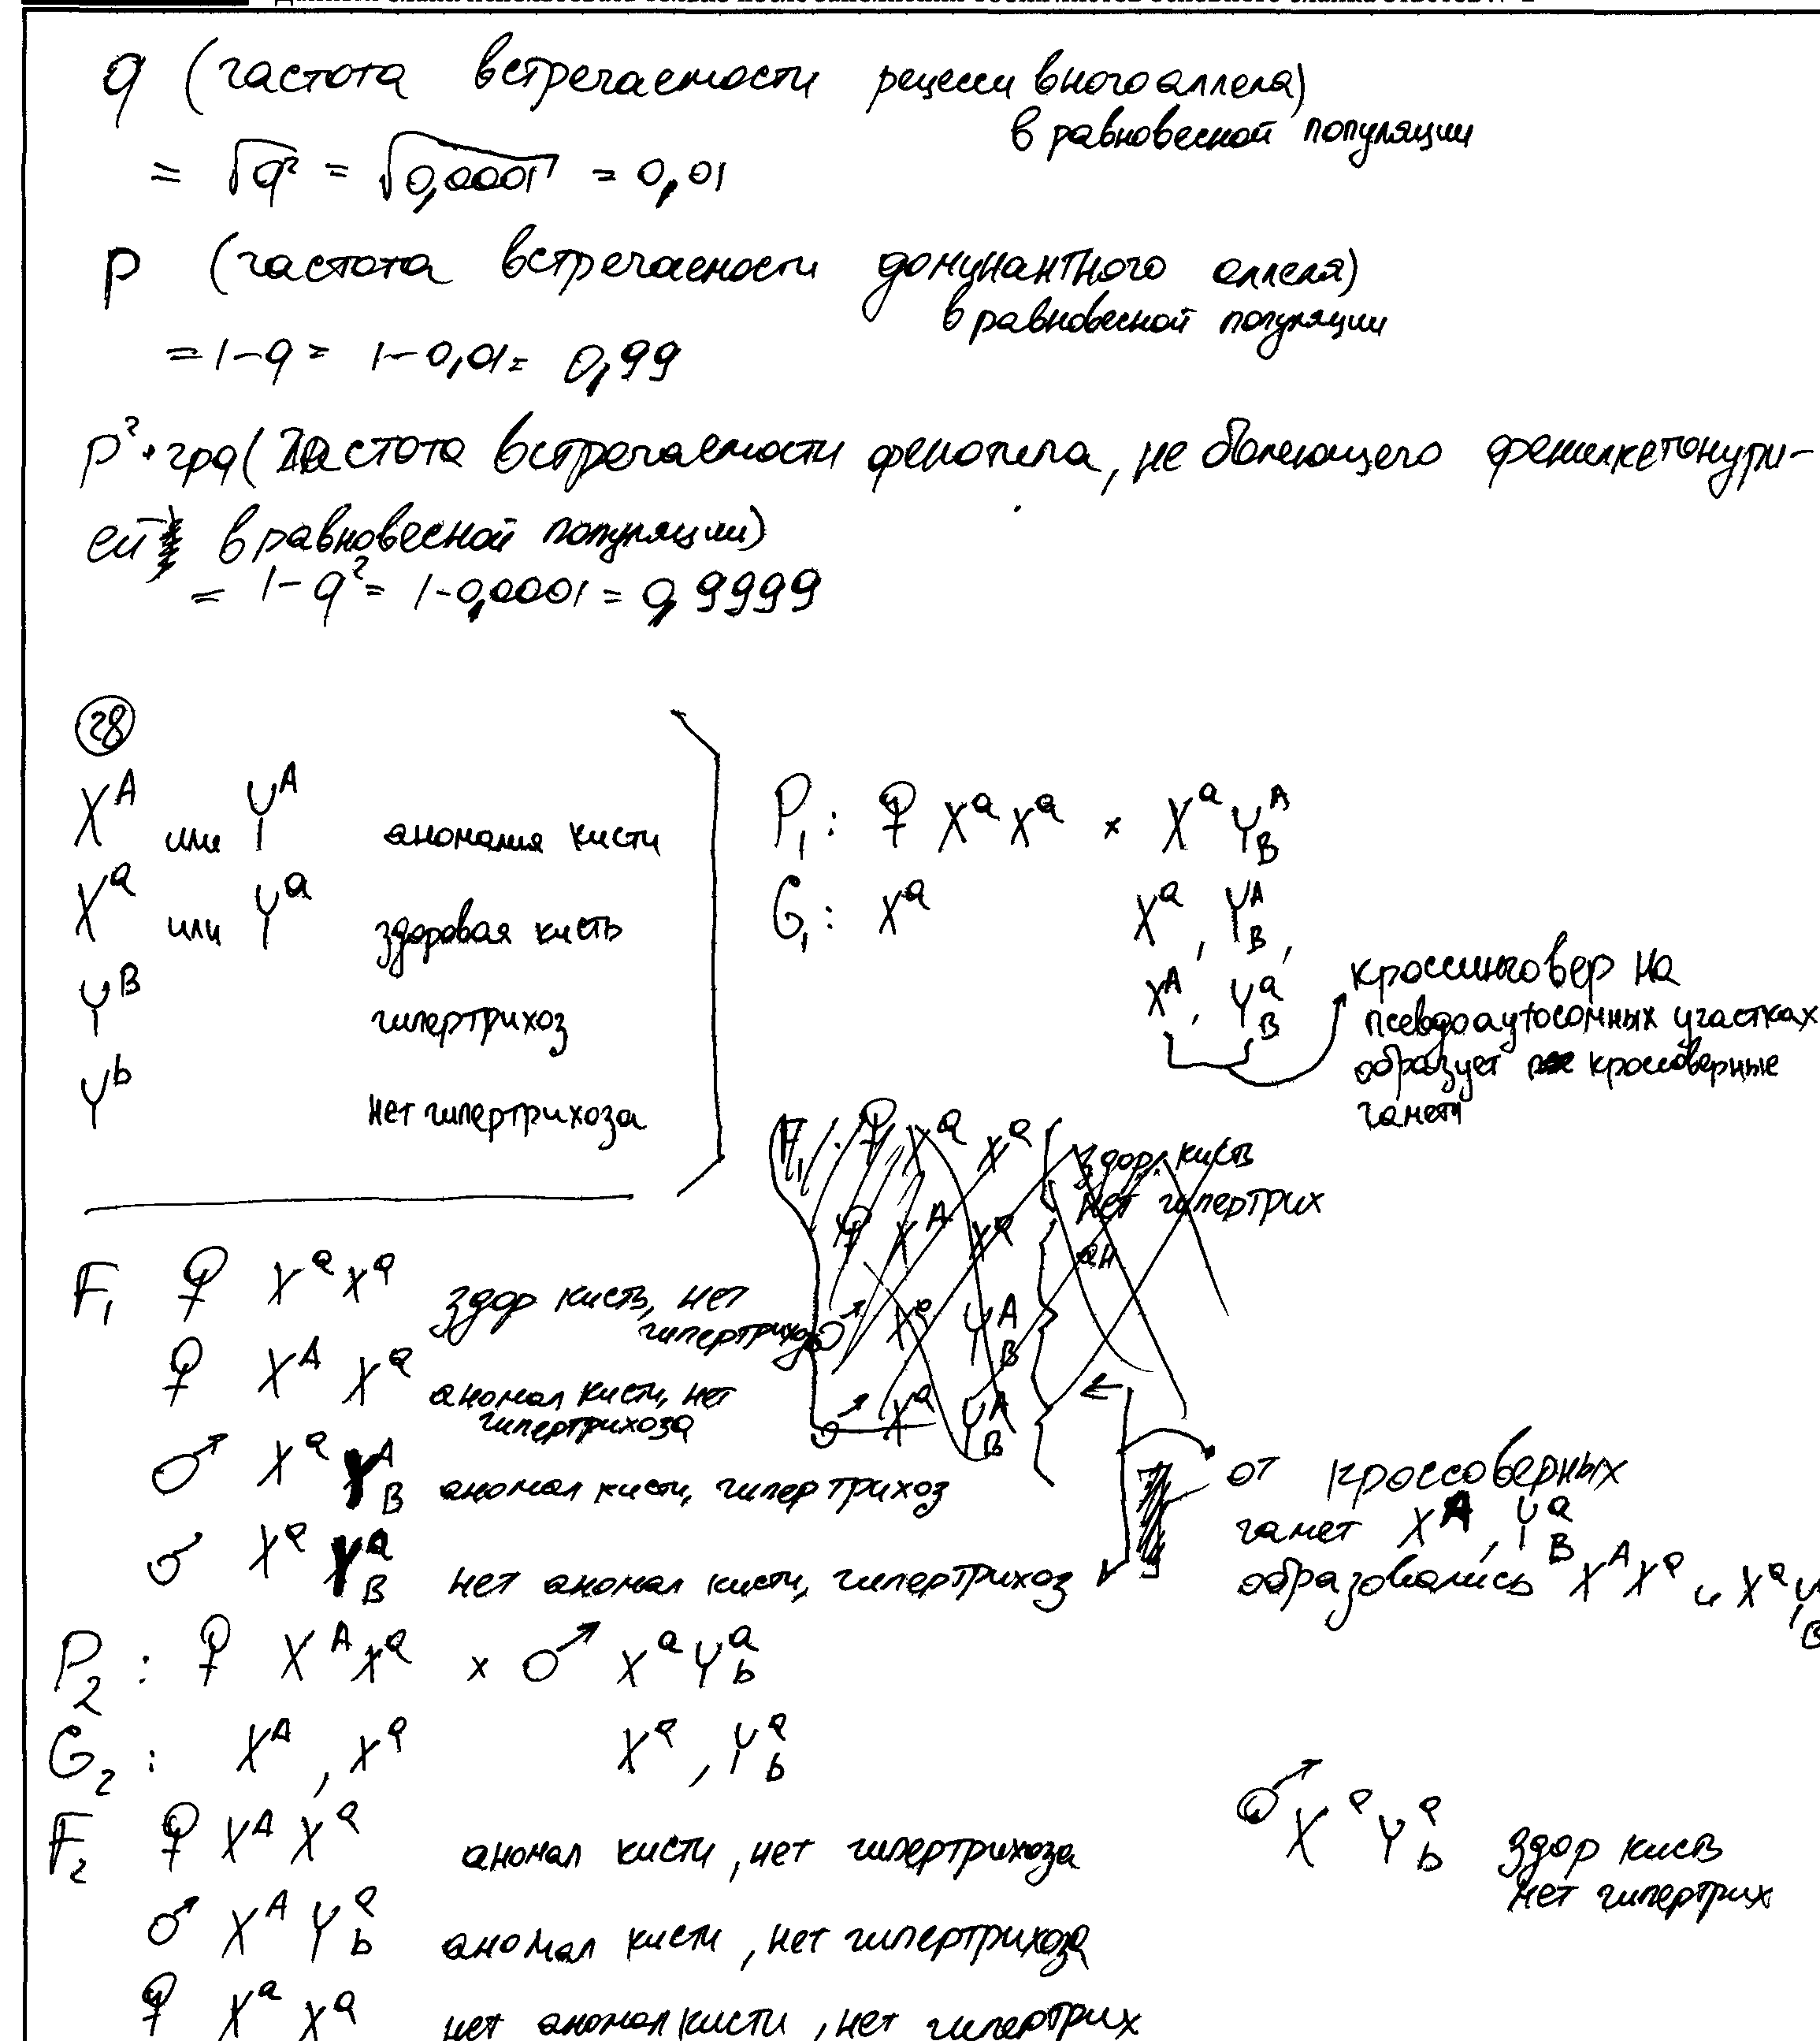 q (частота встречаемости рецессивного аллела)
в равновесной популяции
= √q² = √0,0001 = 0,01
p (частота встречаемости доминантного аллеля)
в равновесной популяции
= 1 - q = 1 - 0,01 = 0,99
p² + 2pq (частота встречаемости фенотипа, не болеющего фенилкетонури-
ей в равновесной популяции)
= 1 - q² = 1 - 0,0001 = 0,9999
28
X^A или Y^A аномалия кисти
X^a или Y^a здоровая кисть
Y^B гипертрихоз
Y^b нет гипертрихоза
P₁: ♀ X^a X^a × X^a Y^A_B
G₁: X^a X^a, Y^A_B,
X^A, Y^a_B
кроссинговер на
псевдоаутосомных участках
образует кроссоверные
гаметы
F₁: ♀ X^a X^a здор. кисть
нет гипертрих
♀ X^A X^a ан
♂ X^a Y^A_B
♂ X^a Y^A_B
F₁ ♀ X^a X^a здор кисть, нет
гипертрихоз
♀ X^A X^a аномал кисти, нет
гипертрихоза
♂ X^a Y^A_B аномал кисти, гипертрихоз
♂ X^a Y^a_B нет аномал кисти, гипертрихоз
от кроссоверных
гамет X^A, Y^a_B
образовались X^A X^a и X^a Y_B
P₂: ♀ X^A X^a × ♂ X^a Y^a_b
G₂: X^A, X^a X^a, Y^a_b
F₂ ♀ X^A X^a аномал кисти, нет гипертрихоза
♂ X^A Y^a_b аномал кисти, нет гипертрихоза
♀ X^a X^a нет аномал кисти, нет гипертрих
♂ X^a Y^a_b здор кисть
нет гипертрих